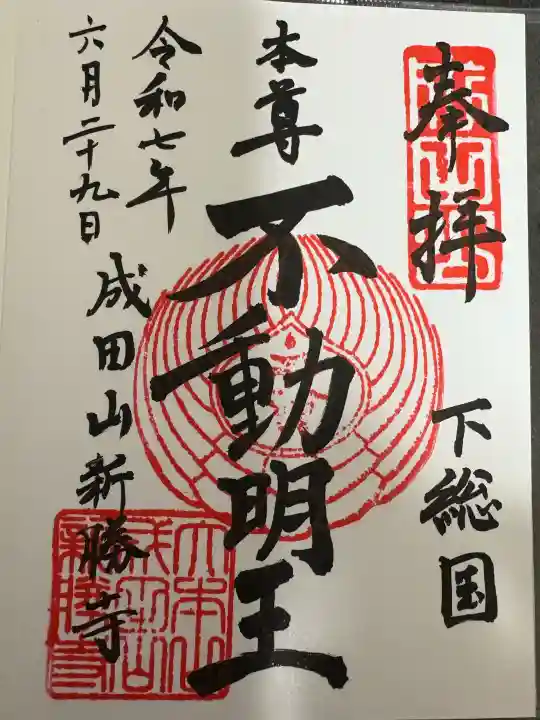 奉拝
下総国
本尊
不動明王
令和七年
六月二十九日
成田山新勝寺
大本山
成田山
新勝寺